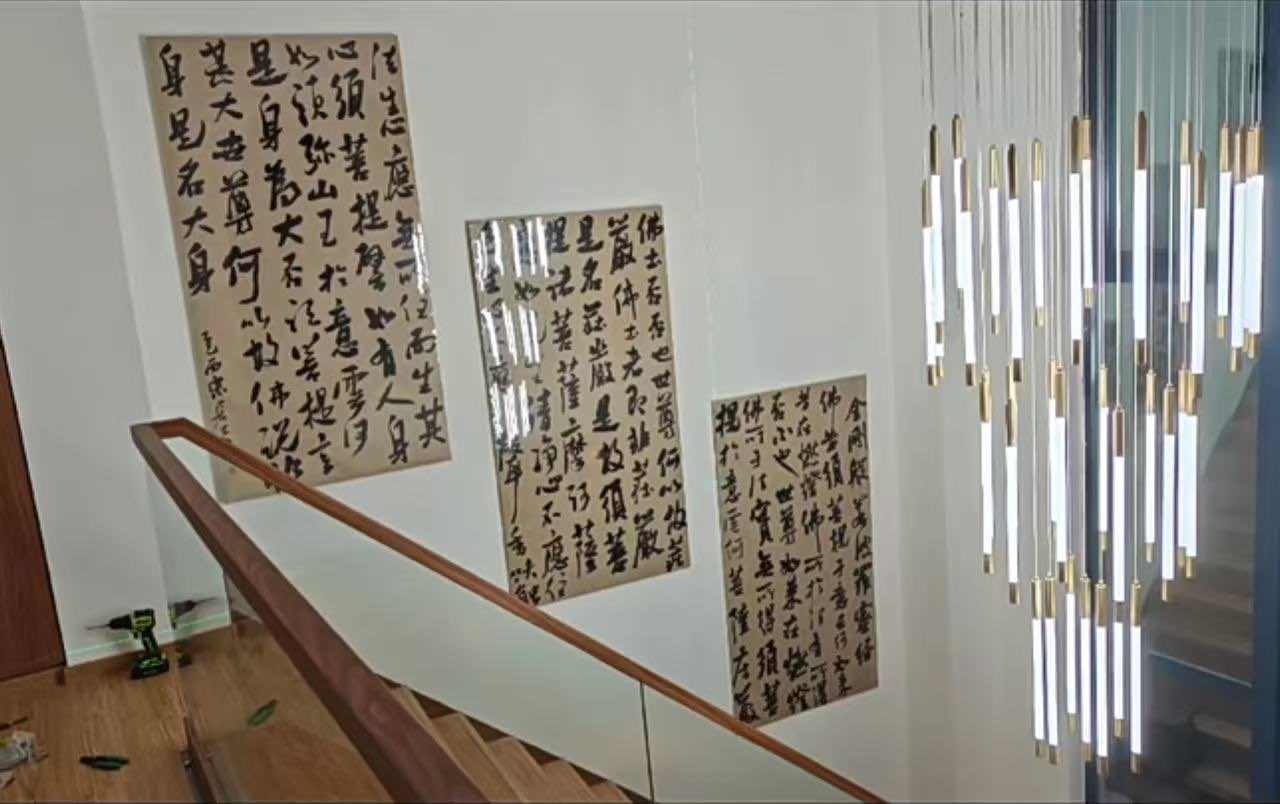 金剛般若波羅蜜經
佛告須菩提于意云何如来
昔在燃燈佛所於法有所得
否不也世尊如来在燃燈
佛所于法實無所得須菩
提於意云何菩薩庄嚴
佛土否否也世尊何以故莊
嚴佛土者即非莊嚴
是名莊嚴是故須菩
提諸菩薩摩訶薩
如是生清淨心不應住
生心應聲香味
法生心應無所住而生其
心須菩提譬如有人身
如須弥山王於意雲何
是身為大否須菩提言
甚大世尊何以故佛說非
身是名大身